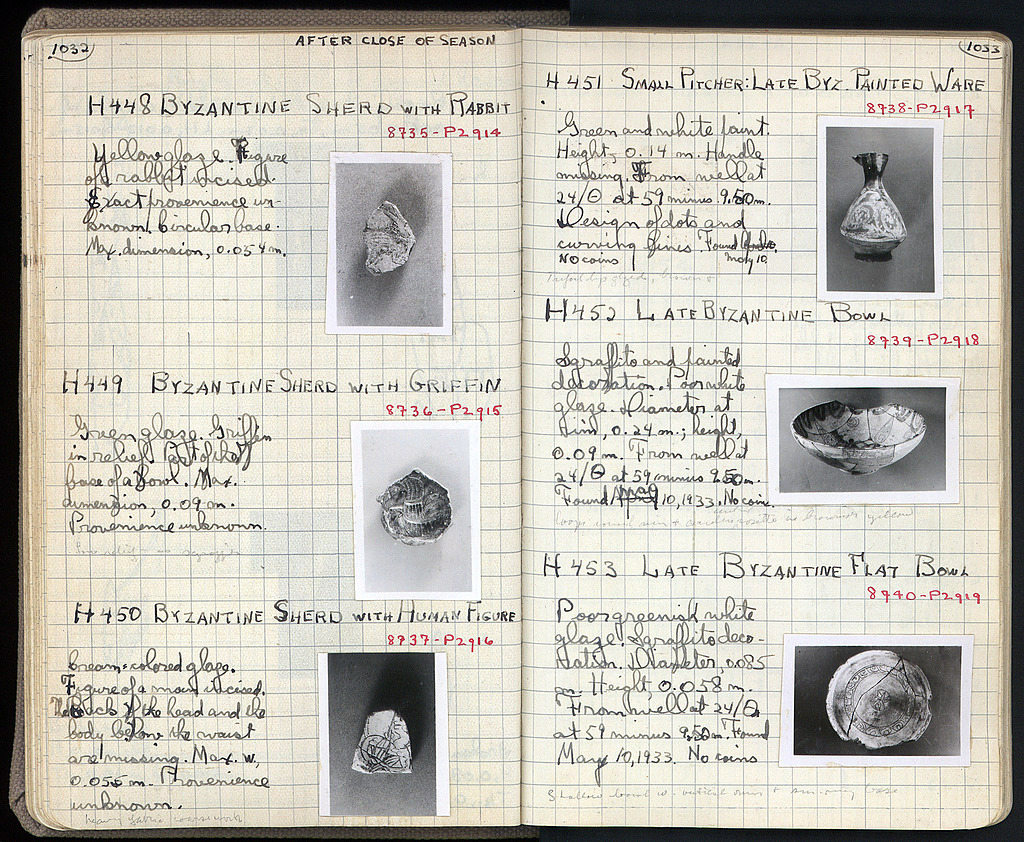 1032
AFTER CLOSE OF SEASON
H448 BYZANTINE SHERD WITH RABBIT
8735-P2914
Yellow glaze. Figure
of rabbit incised.
Exact provenience un-
known. Circular base.
Max. dimension, 0.054 m.
H449 BYZANTINE SHERD WITH GRIFFIN
8736-P2915
Green glaze. Griffin
in relief. Part of the
base of a bowl. Max.
dimension, 0.09 m.
Provenience unknown.
Low relief - no
H450 BYZANTINE SHERD WITH HUMAN FIGURE
8737-P2916
Cream-colored glaze.
Figure of a man incised.
The Back of the head and the
body below the waist
are missing. Max. w.,
0.055 m. Provenience
unknown.
heavy fabric coarse work
1033
H451 SMALL PITCHER: LATE BYZ. PAINTED WARE
8738-P2917
Green and white paint.
Height, 0.14 m. Handle
missing. From well at
24/Θ at 59 minus 9.50 m.
Design of dots and
curving lines. Found
No coins May 10.
H452 LATE BYZANTINE BOWL
8739-P2918
Sgraffito and painted
decoration. Poor white
glaze. Diameter at
rim, 0.24 m.; height,
0.09 m. From well at
24/Θ at 59 minus 9.50 m.
Found May 10, 1933. No coins.
H453 LATE BYZANTINE FLAT BOWL
8740-P2919
Poor greenish white
glaze. Sgraffito deco-
ration. Diameter, 0.085
m. Height, 0.058 m.
From well at 24/Θ
at 59 minus 9.50 m. Found
May 10, 1933. No coins
Shallow bowl w. vertical rim + base